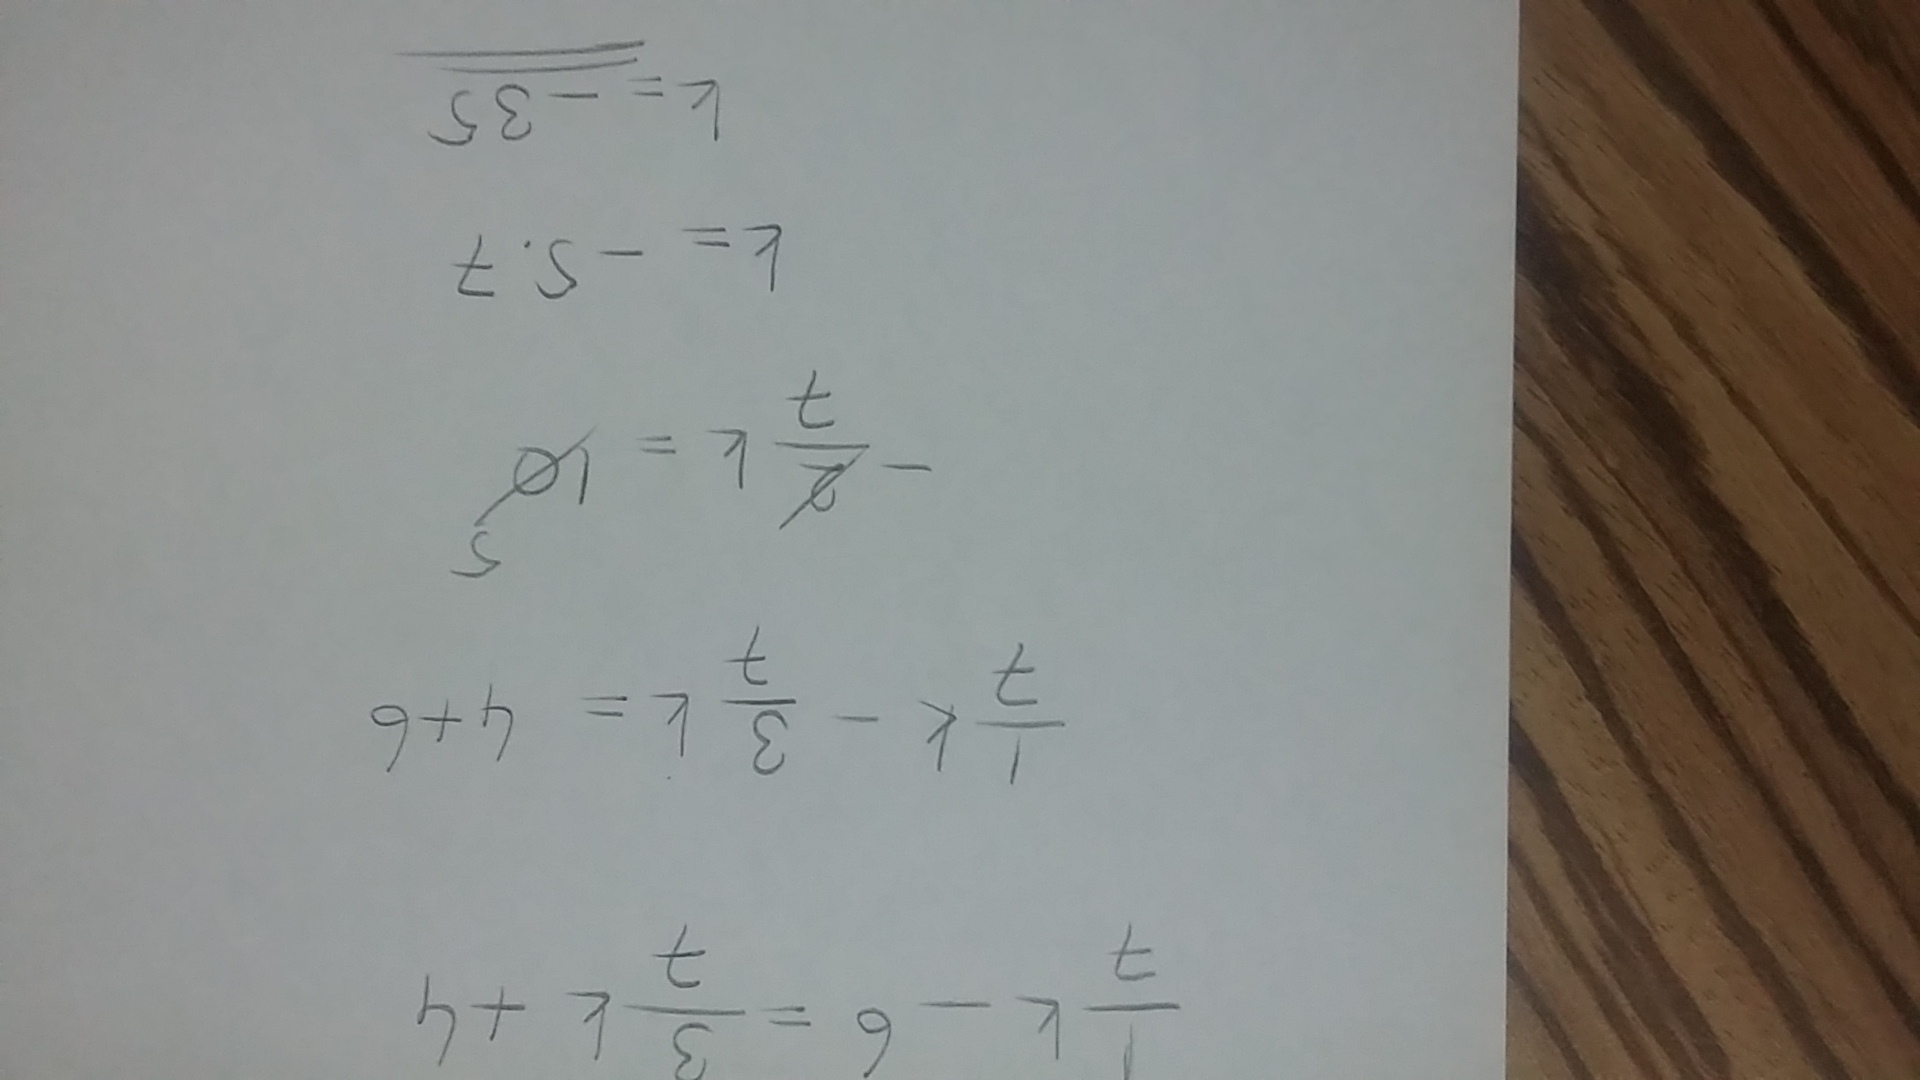 1/7 k - 6 = 3/7 k + 4
1/7 k - 3/7 k = 4+6
- 2/7 k = 10 5
k = -5.7
k = -35